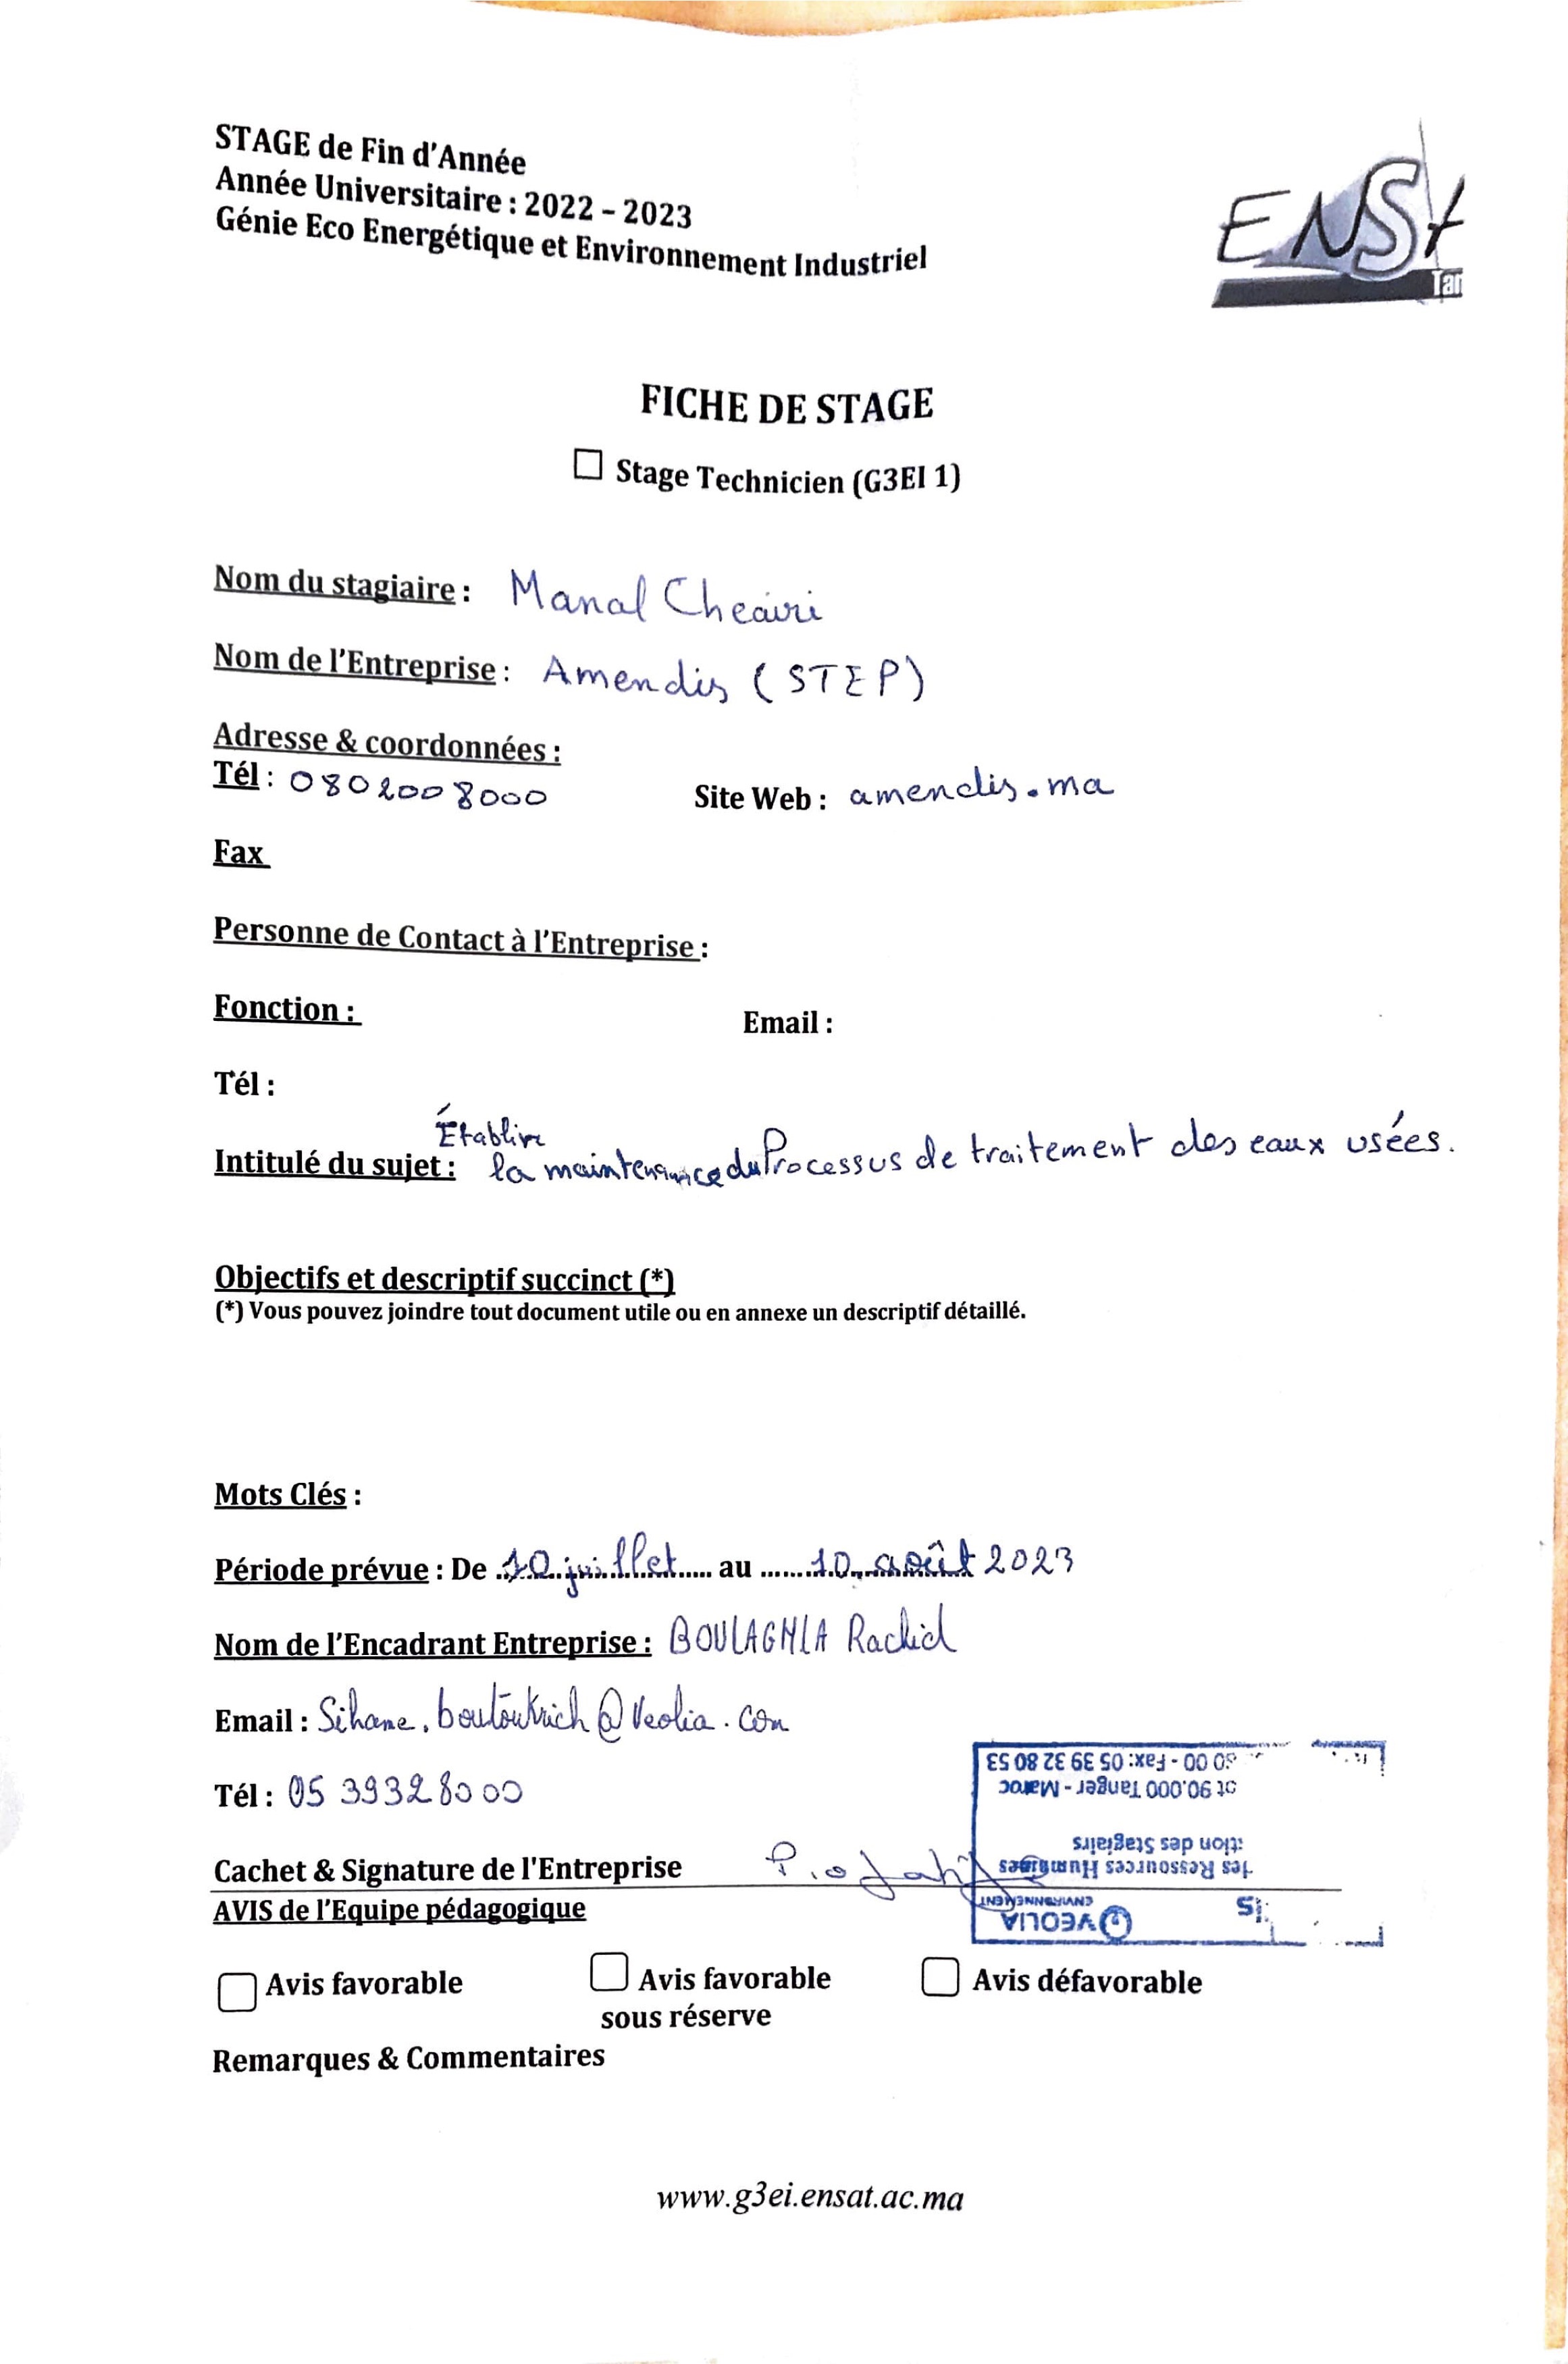 STAGE de Fin d'Année
Année Universitaire : 2022 – 2023
Génie Eco Energétique et Environnement Industriel
ENSA
Tan
FICHE DE STAGE
Stage Technicien (G3EI 1)
Nom du stagiaire : Manal Cheairi
Nom de l'Entreprise : Amendis (STEP)
Adresse & coordonnées :
Tél : 0802008000 Site Web : amendis.ma
Fax
Personne de Contact à l'Entreprise :
Fonction : Email :
Tél :
Établire
Intitulé du sujet : la maintenance du Processus de traitement des eaux usées.
Objectifs et descriptif succinct (*)
(*) Vous pouvez joindre tout document utile ou en annexe un descriptif détaillé.
Mots Clés :
Période prévue : De 10 juillet au 10 août 2023
Nom de l'Encadrant Entreprise : BOULAGHLA Rachid
Email : Sihame.boutoukrich@veolia.com
Tél : 05 39328000
Cachet & Signature de l'Entreprise
AVIS de l'Equipe pédagogique
VEOLIA
ENVIRONNEMENT
is
des Ressources Humaines
tion des Stagiairs
ot 90.000 Tanger - Maroc
80 00 - Fax: 05 39 32 80 53
Avis favorable Avis favorable Avis défavorable
sous réserve
Remarques & Commentaires
www.g3ei.ensat.ac.ma